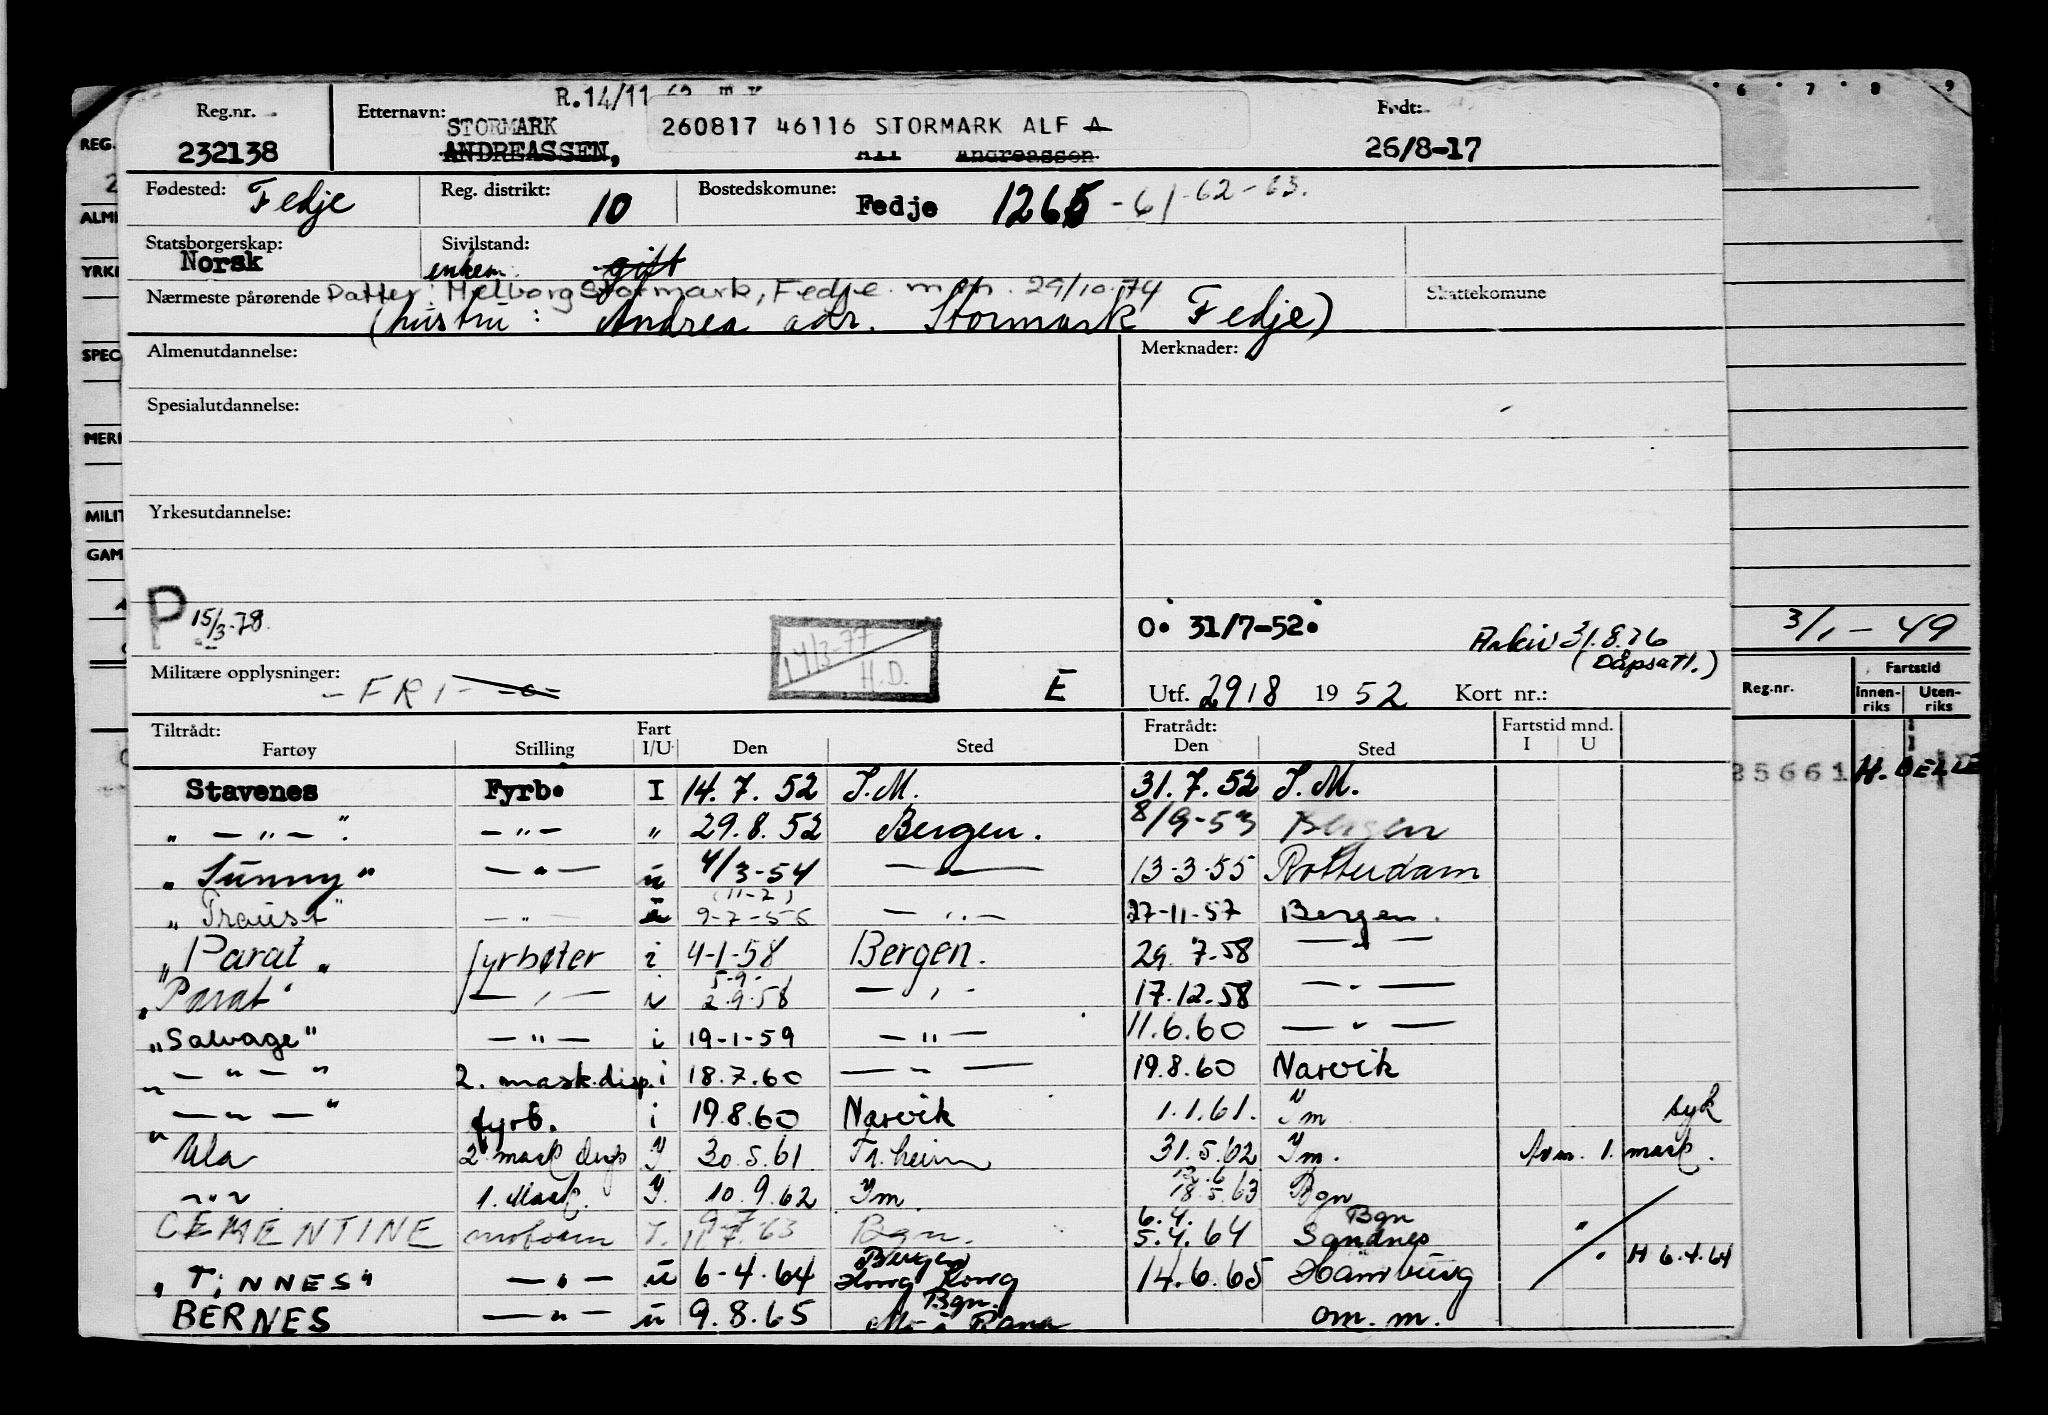 R.14/11
Reg.nr. Etternavn: Født:
STORMARK 260817 46116 STORMARK ALF A
232138 ANDREASSEN, Alf Andreassen 26/8-17
Fødested: Fedje Reg. distrikt: 10 Bostedskomune: Fedje 1265 -61-62-63.
Statsborgerskap: Norsk Sivilstand: enkem. gift
Nærmeste pårørende Datter: Stormark, Fedje 29/10.74 Skattekomune
(hustru: Andrea adr. Stormark Fedje)
Almenutdannelse: Merknader:
Spesialutdannelse:
Yrkesutdannelse:
P 15/3-78. 14/3-77 H.D. O. 31/7-52. Arkiv 31.8.76 (Dåpsatt.)
Militære opplysninger: -FRI- E Utf. 2918 1952 Kort nr.:
Tiltrådt: Fart Fratrådt: Fartstid mnd.
Fartøy Stilling I/U Den Sted Den Sted I U
Stavenes Fyrb. I 14.7.52 I.M. 31.7.52 I.M.
" — " — " — " — " 29.8.52 Bergen. 8/9-53 Bergen
"Sunny" — " — u 4/3-54 — " — 13-3-55 Rotterdam
(11-2)
"Traust" — " — u 9-7-55 — " — 27-11-57 Bergen.
"Parat" fyrbøter i 4-1-58 Bergen. 29.7-58 — " —
5-9-
"Parat" — " — i 2.9.58 — " — 17.12.58 — " —
"Salvage" — " — i 19-1-59 — " — 11.6.60 — " —
" — " — " 2. mask.disp. i 18.7.60 — " — 19.8.60 Narvik
" — " — " fyrb. i 19.8.60 Narvik 1.1.61. Im syk
"Ula 2 mask disp I 30.5.61 Tr.heim 31.5.62 Im. Avm. 1. mask.
— " — 1. Mask. I. 10.9.62 Im 18.5.63 Bgn
CEMENTINE motorm I. 63 Bgn. 6.4. 5.4.64 Bgn Sandnes "
"TINNES" — " — u 6-4-64 Bergen Hong Kong 14.6.65 Hamburg " H 6.4.64
BERNES — " — u 9.8.65 Bgn. Mo i Rana om. m.
REG.
ALM
YRK
SPEC
MERK
MILIT
GAM
6 7 8 9
3/1-49
Reg.nr. Fartstid
Innen-riks Uten-riks
25661 H.